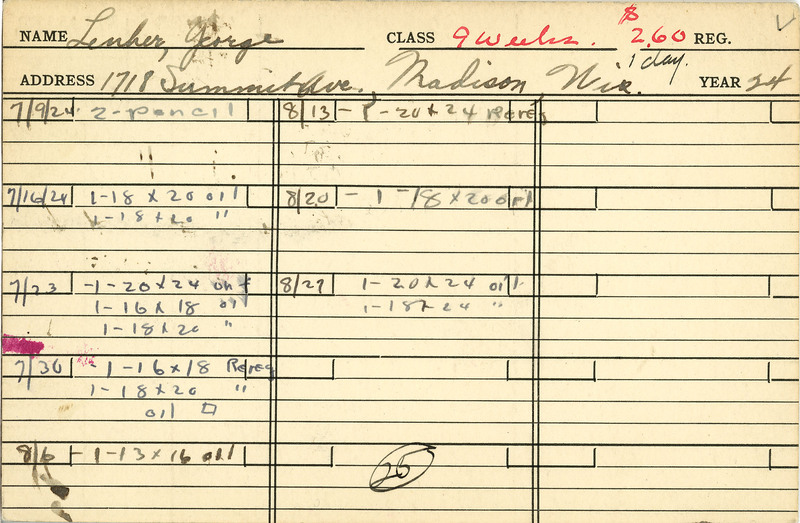 $
NAME Lenher, George CLASS 9 weeks. 2.60 REG.
1 day.
ADDRESS 1718 Summit Ave., Madison, Wis. YEAR 24
7/9/24 2-pencil
"
7/16/24 1-18 x 20 oil
1-18 x 20 "
7/23 -1-20 x 24 oil
1-16 x 18 oil
1-18 x 20 "
7/30 1-16 x 18 Rereg
1-18 x 20 "
oil
8/6 -1-13 x 16 oil
8/13 - 1-20 x 24 Rereg
8/20 - 1-18 x 20 oil
8/27 1-20 x 24 oil
1-18 x 24 "
25